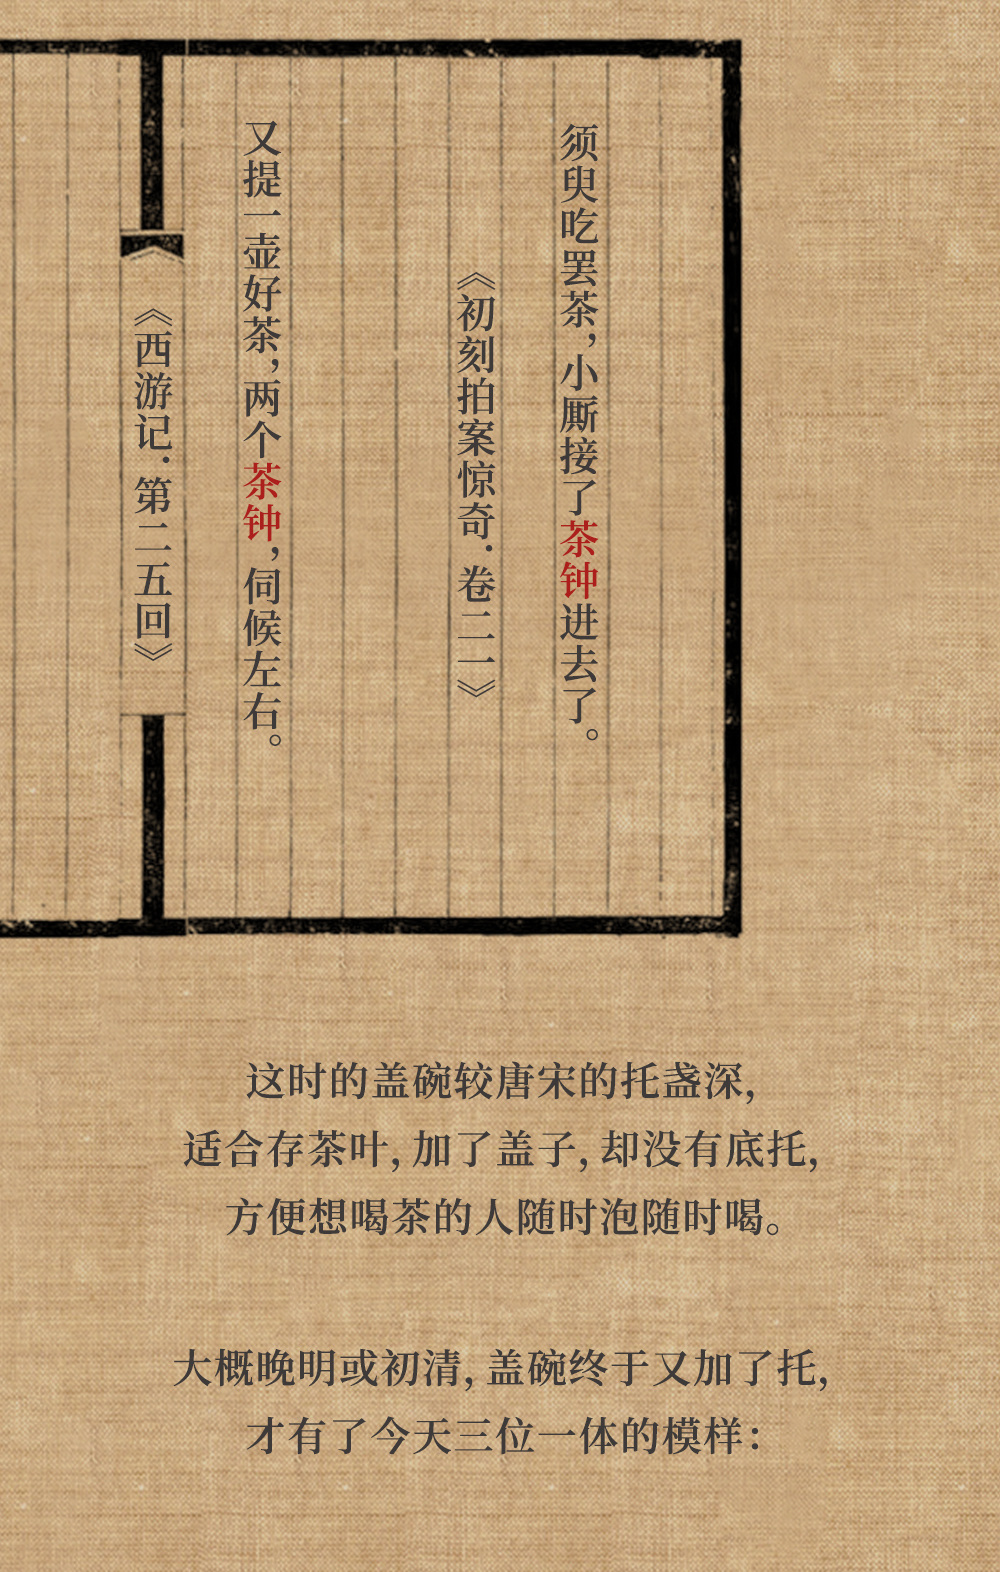 须臾吃罢茶，小厮接了茶钟进去了。
《初刻拍案惊奇·卷二一》
又提一壶好茶，两个茶钟，伺候左右。
《西游记·第二五回》
这时的盖碗较唐宋的托盏深，
适合存茶叶，加了盖子，却没有底托，
方便想喝茶的人随时泡随时喝。
大概晚明或初清，盖碗终于又加了托，
才有了今天三位一体的模样：